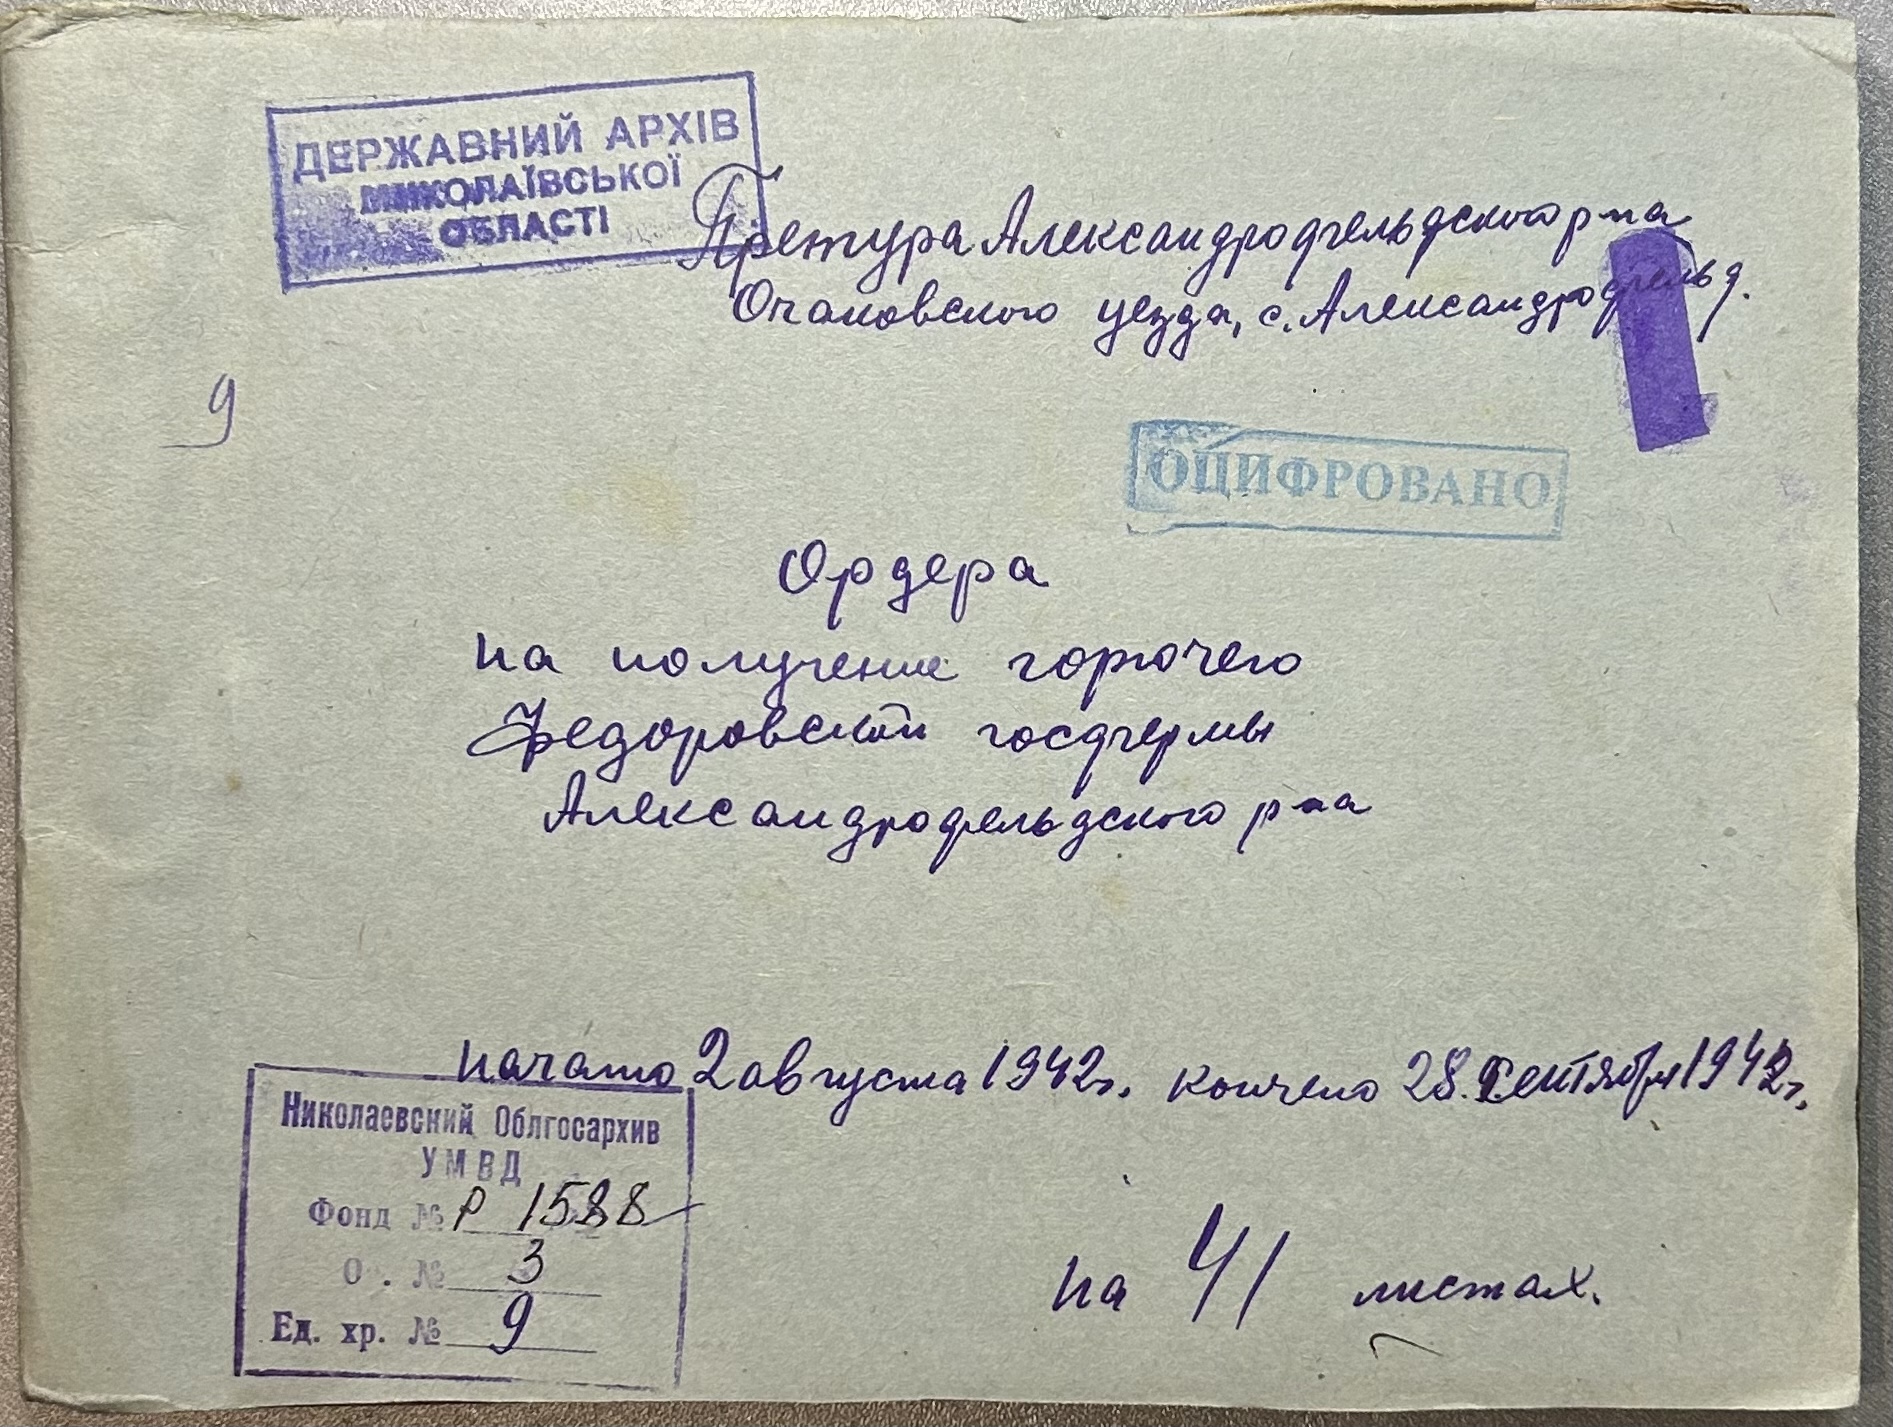 ДЕРЖАВНИЙ АРХІВ
МИКОЛАЇВСЬКОЇ
ОБЛАСТІ
Претура Александрофельдского р-на
Очаковского уезда, с. Александрофельд.
9
ОЦИФРОВАНО
Ордера
на получение горючего
Федоровской госфермы
Александрофельдского р-на
начато 2 августа 1942г. кончено 28. сентября 1942г.
Николаевский Облгосархив
УМВД
Фонд № Р 1588
О . № 3
Ед. хр. № 9
на 41 листах.